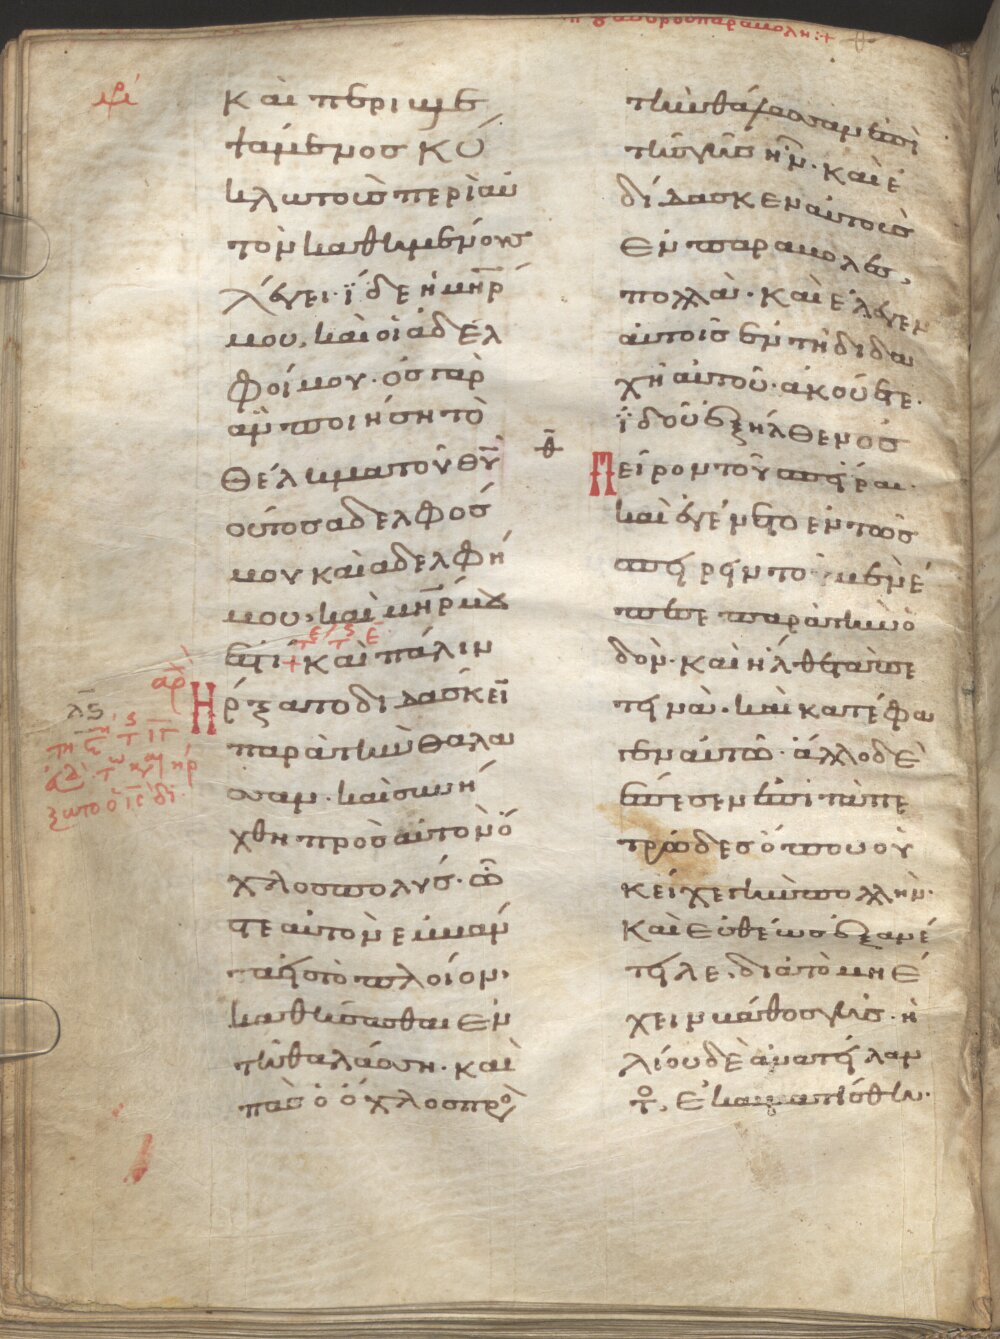 καὶ περιβλε
ψάμενος κύ
κλω τοὺς περὶ αὐ
τὸν καθημένους
λέγει· ἴδε ἡ μηρ
μου, καὶ οἱ ἀδελ
φοί μου· ὃς γὰρ
ἂν ποιήση τὸ
θέλημα τοῦ θυ
οὗτος ἀδελφός
μου καὶ ἀδελφή
μου, καὶ μηρ μου
ἐστί· καὶ πάλιν
Ἤρξατο διδάσκειν
παρὰ τὴν θάλα
σσαν· καὶ συνή
χθη πρὸς αὐτὸν ὄ
χλος πολύς· ὥσ
τε αὐτὸν ἐμβάν
τα εἰς τὸ πλοῖον,
καθῆσθαι ἐν
τῇ θαλάσση· καὶ
πᾶς ὁ ὄχλος πρὸς
τὴν θάλασσαν ἐπὶ
τῆς γῆς ἦν· καὶ ἐ
δίδασκεν αὐτοὺς
ἐν παραβολαῖς,
πολλά· καὶ ἔλεγεν
αὐτοῖς ἐν τῇ διδα
χῇ αὐτοῦ· ἀκούετε·
ἰδοὺ ἐξῆλθεν ὁ σ
Πείρων τοῦ σπεῖραι·
καὶ ἐγένετο ἐν τῶ σ
πείρειν τὸ· μὲν ἔ
πεσε παρὰ τὴν ὁ
δόν· καὶ ἦλθε τὰ πε
τεινὰ· καὶ κατέφα
γεν αὐτό· ἄλλο δὲ
ἔπεσεν ἐπὶ τὰ πε
τρώδες ὅπου οὐ
κ εἶχε γῆν πολλήν·
καὶ εὐθέως ἐξανέ
τειλε, διὰ τὸ μὴ ἔ
χειν βάθος γῆς· ἡ
λίου δὲ ἀνατείλαν
τος, ἐκαυματίσθη·